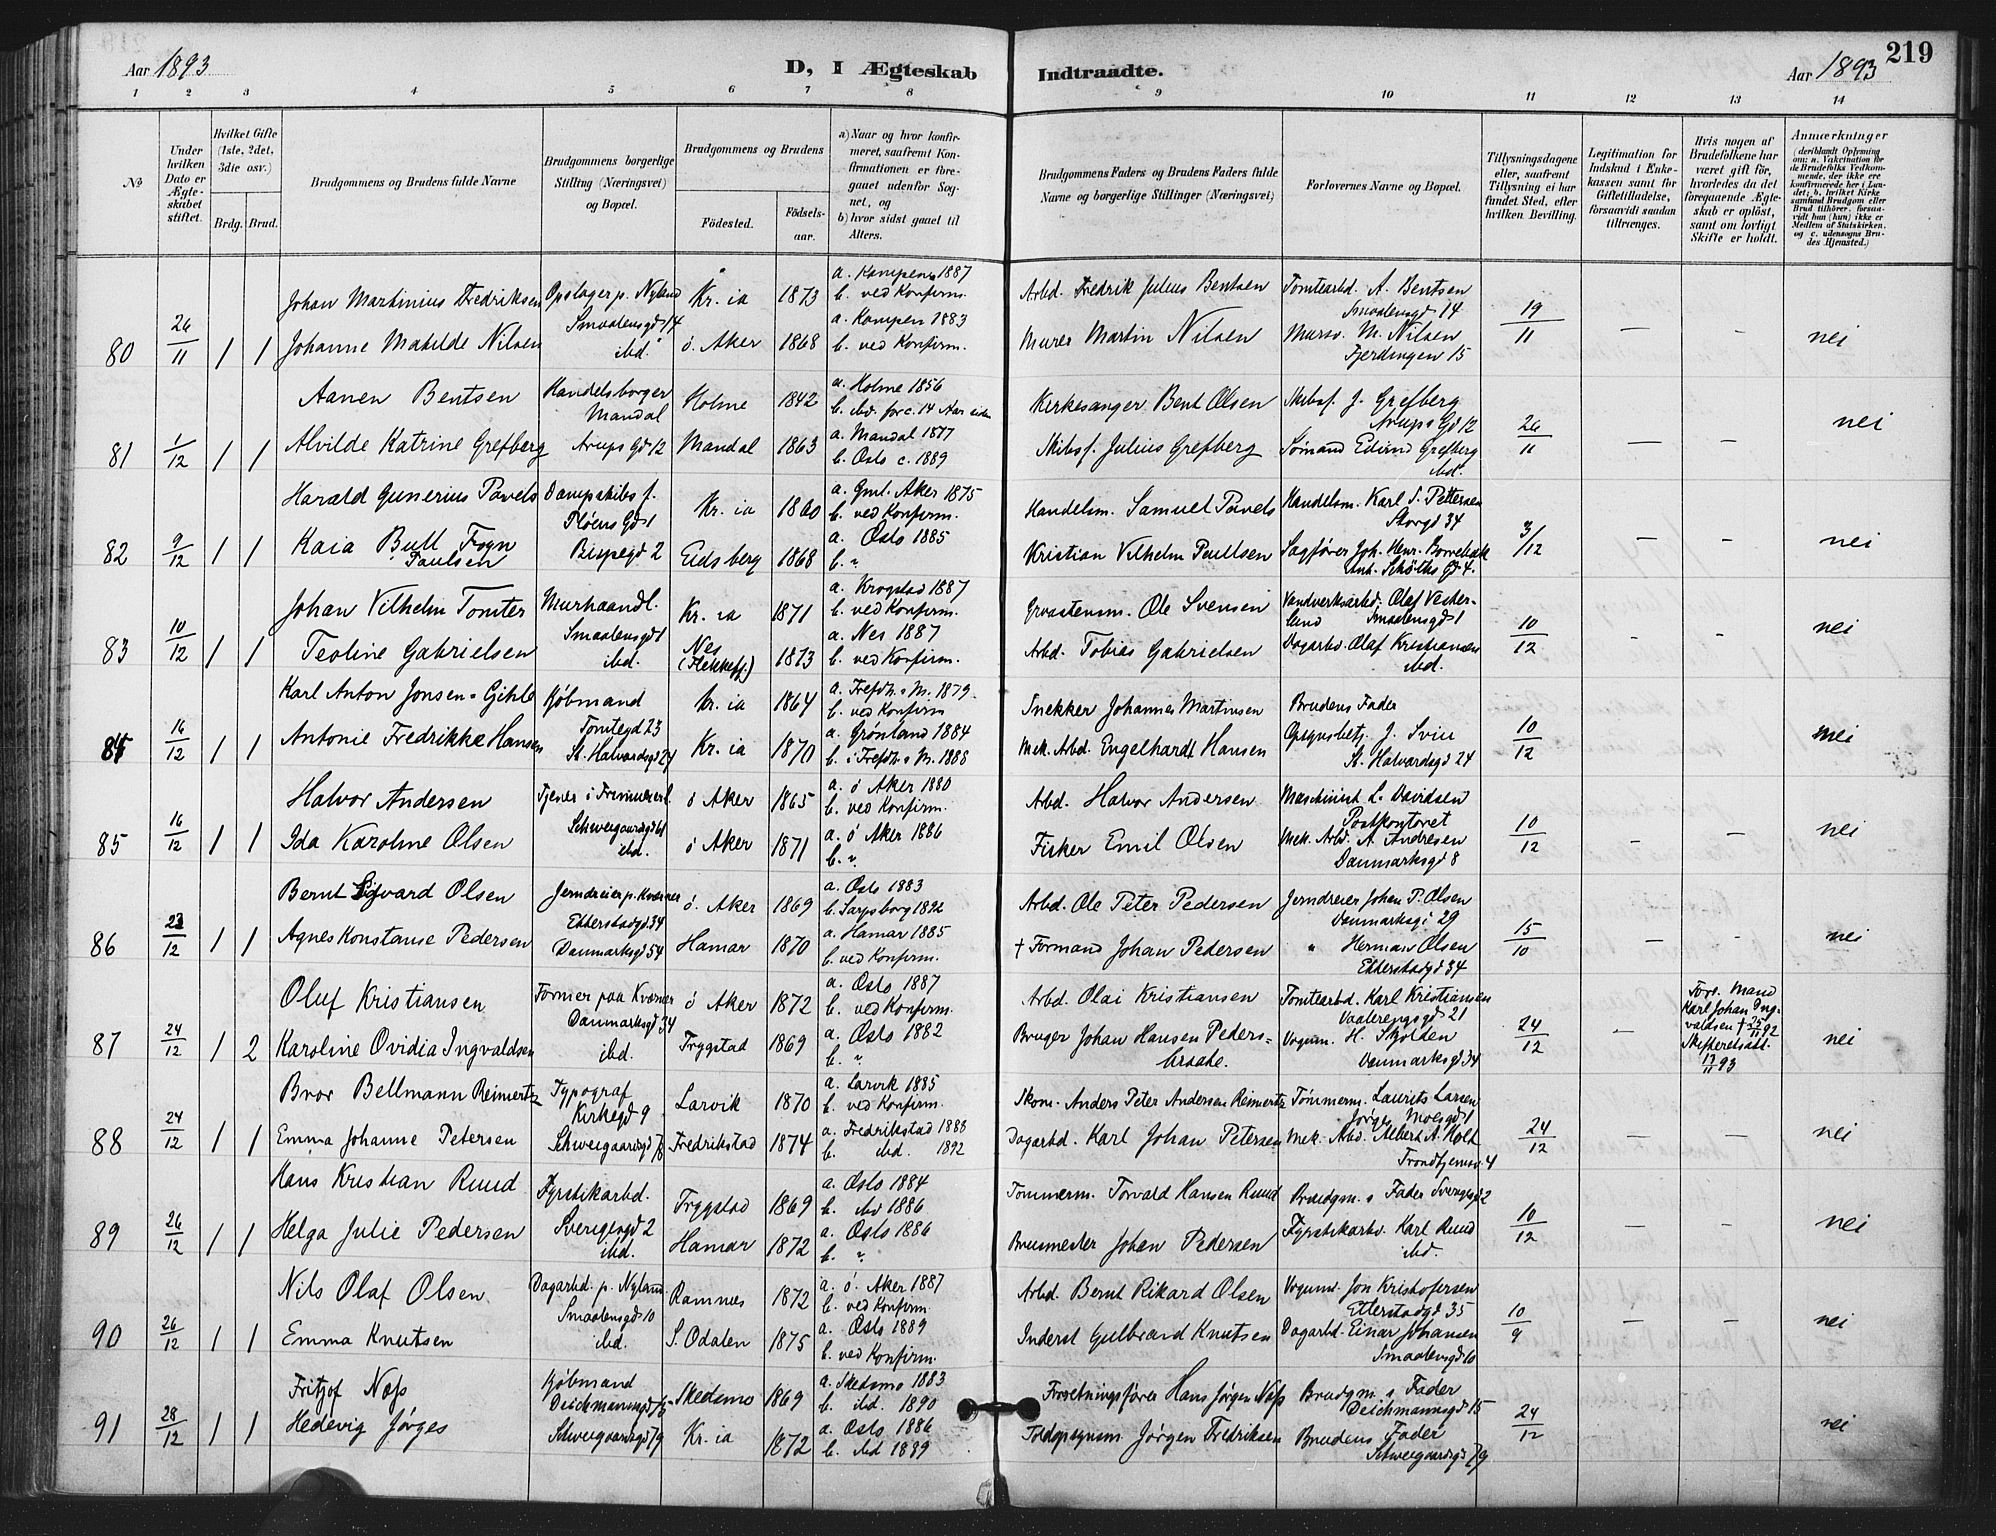 219
Aar 1893
D, I Ægteskab Indtraadte.
Aar 1893
1 2 3 4 5 6 7 8 9 10 11 12 13 14
№
Under hvilken Dato er Ægteskabet stiftet.
Hvilket Gifte (1ste, 2det, 3die osv.)
Brdg. Brud.
Brudgommens og Brudens fulde Navne
Brudgommens borgerlige Stilling (Næringsvei) og Bopœl.
Brudgommens og Brudens
Födested. Födselsaar.
a) Naar og hvor konfirmeret, saafremt Konfirmationen er foregaaet udenfor Sognet, og
b) hvor sidst gaaet til Alters.
Brudgommens Faders og Brudens Faders fulde Navne og borgerlige Stillinger (Næringsvei)
Forlovernes Navne og Bopœl.
Tillysningsdagene eller, saafremt Tillysning ei har fundet Sted, efter hvilken Bevilling.
Legitimation for Indskud i Enkekassen samt for Giftetilladelse, forsaavidt saadan tiltrænges.
Hvis nogen af Brudefolkene har været gift för, hvorledes da det foregaaende Ægteskab er oplöst, samt om lovligt Skifte er holdt.
Anmærkninger
80 26/11 1 1
Johan Martinius Fredriksen Opslager p. Nyland Smaalensgd 14 Kr.ia 1873 a. Kampen 1887 b. ved Konfirm. Arbd. Fredrik Julius Bentsen Tomtearbd. A. Bentsen Smaalensgd 14 19/11 — — nei
Johanne Matilde Nilsen ibd. ö. Aker 1868 a. Kampen 1883 b. ved Konfirm. Murer Martin Nilsen Mursv. M. Nilsen Fjerdingen 15
81 1/12 1 1
Aanen Bentsen Handelsborger Mandal Holme 1842 a. Holme 1856 b. ibd. for c. 14 Aar siden Kirkesanger Bent Olsen Skibsf. J. Grefberg Arups Gd 12 26/11 — — nei
Alvilde Katrine Grefberg Arups Gd 12 Mandal 1863 a. Mandal 1877 b. Oslo c. 1889 Skibsf. Julius Grefberg Sömand Edvind Grefberg ibd.
82 9/12 1 1
Harald Gunerius Pavels Dampskibsf. Flöiens Gd 1 Kr.ia 1860 a. Gml. Aker 1875 b. ved Konfirm. Handelsm. Samuel Pavels Handelsm. Karl S. Pettersen Storgd 34 3/12 — — nei
Kaia Bull Fogn Paulsen Bispegd 2 Eidsberg 1868 a. Oslo 1885 b. " Kristian Vilhelm Paullsen Sagförer Joh. Henr. Borrebæk Ank. Schöths Gd 4.
83 10/12 1 1
Johan Vilhelm Tomter Murhaandl. Smaalensgd 1 Kr.ia 1871 a. Krogstad 1887 b. ved Konfirm. Ole Svensen Vandverksarbd. Olaf Vesterlund Smaalensgd 1 10/12 — — nei
Teoline Gabrielsen ibd. Nes (Flekkefj.) 1873 a. Nes 1887 b. ved Konfirm. Arbd. Tobias Gabrielsen Dagarbd. Olaf Kristiansen ibd.
84 16/12 1 1
Karl Anton Jonsen-Gihle Kjöbmand Tomtegd 23 Kr.ia 1864 a. Trefdh.s M. 1879. b. ved Konfirm Snekker Johannes Martinsen Brudens Fader 10/12 nei
Antonie Fredrikke Hansen St. Halvardsgd 24 Kr.ia 1870 a. Grönland 1884 b. i Trefdh.s M. 1888 Mek. Arbd. Engelhardt Hansen Opsynsbetj. J. Sviu St. Halvardsgd 24
85 16/12 1 1
Halvor Andersen Tjener i Schweigaardsgd 61 ö Aker 1865 a. ö Aker 1880 b. ved Konfirm. Arbd. Halvor Andersen Maschinist L. Davidsen Postkontoret 10/12 — — nei
Ida Karoline Olsen ibd. ö Aker 1871 a. ö Aker 1886 b. " Fisker Emil Olsen Mek. Arbd. A. Andresen Danmarksgd 8
86 23/12 1 1
Bernt Sigvard Olsen Jerndreier p. Kværner Etterstadgd 34 ö. Aker 1869 a. Oslo 1883 b. Sarpsborg 1892 Arbd. Ole Peter Pedersen Jerndreier Johan P. Olsen Danmarksg: 29 15/10 — — nei
Agnes Konstanse Pedersen Danmarksgd 54 Hamar 1870 a. Hamar 1885 b. ved Konfirm. † Formand Johan Pedersen " Herman Olsen Etterstadgd 34
87 24/12 1 2
Oluf Kristiansen Former paa Kværner Danmarksgd 34 ö Aker 1872 a. Oslo 1887 b. ved Konfirm. Arbd. Olai Kristiansen Tomtearbd. Karl Kristiansen Vaalerengsgd 21 24/12 — Forr. Mand Karl Johan Ingvaldsen † 25/11 92 Skifteretsatt. 13/11 93 nei
Karoline Ovidia Ingvaldsen ibd. Trygstad 1869 a. Oslo 1882 b. " Bruger Johan Hansen Pedersbraate. Vognm. H. Skolden Danmarksgd 34
88 24/12 1 1
Bror Bellmann Reimertz Typograf Kirkegd 9 Larvik 1870 a. Larvik 1885 b. ved Konfirm. Skom. Anders Peter Andersen Reimertz Tömmerm. Laurits Larsen Jörges Moesgd 1 24/12 — — nei
Emma Johanne Petersen Schweigaardsgd 78 Fredrikstad 1874 a. Fredrikstad 1883 b. ibd. 1892 Dagarbd. Karl Johan Petersen Mek. Arbd. Albert A. Holt Trondhjemsv. 4
89 26/12 1 1
Hans Kristian Ruud Fyrstikarbd. Sverigesgd 2 Trygstad 1869 a. Oslo 1884 b. ibd 1886 Tömmerm. Torvald Hansen Ruud Brudgm.s Fader Sverigesgd 2 10/12 — — nei
Helga Julie Pedersen ibd. Hamar 1872 a. Oslo 1886 b. " Johan Pedersen Fyrstikarbd. Karl Ruud ibd.
90 26/12 1 1
Nils Olaf Olsen Dagarbd. p. Nyland Smaalensgd 10 Ramnes 1872 a. ö. Aker 1887 b. ved Konfirm. Arbd. Bernt Rikard Olsen Vognm. Jon Kristofersen Etterstadgd 35 10/9 — — nei
Emma Knutsen ibd. S. Odalen 1875 a. Oslo 1889 b. ved Konfirm. Inderst Gulbrand Knutsen Dagarbd. Einar Johansen Smaalensgd 10
91 28/12 1 1
Fritjof Næss Kjöbmand Deichmannsgd 15 Skedsmo 1869 a. Skedsmo 1883 b. ibd. 1890 Forretningsförer Hans Jörgen Næss Brudgm.s Fader Deichmannsgd 15 24/12 nei
Hedevig Jörges Schweigaardsgd 79 Kr.ia 1872 a. Oslo 1886 b. ibd 1889 Toldopsynsm. Jörgen Fredriksen Brudens Fader Schweigaardsgd 79